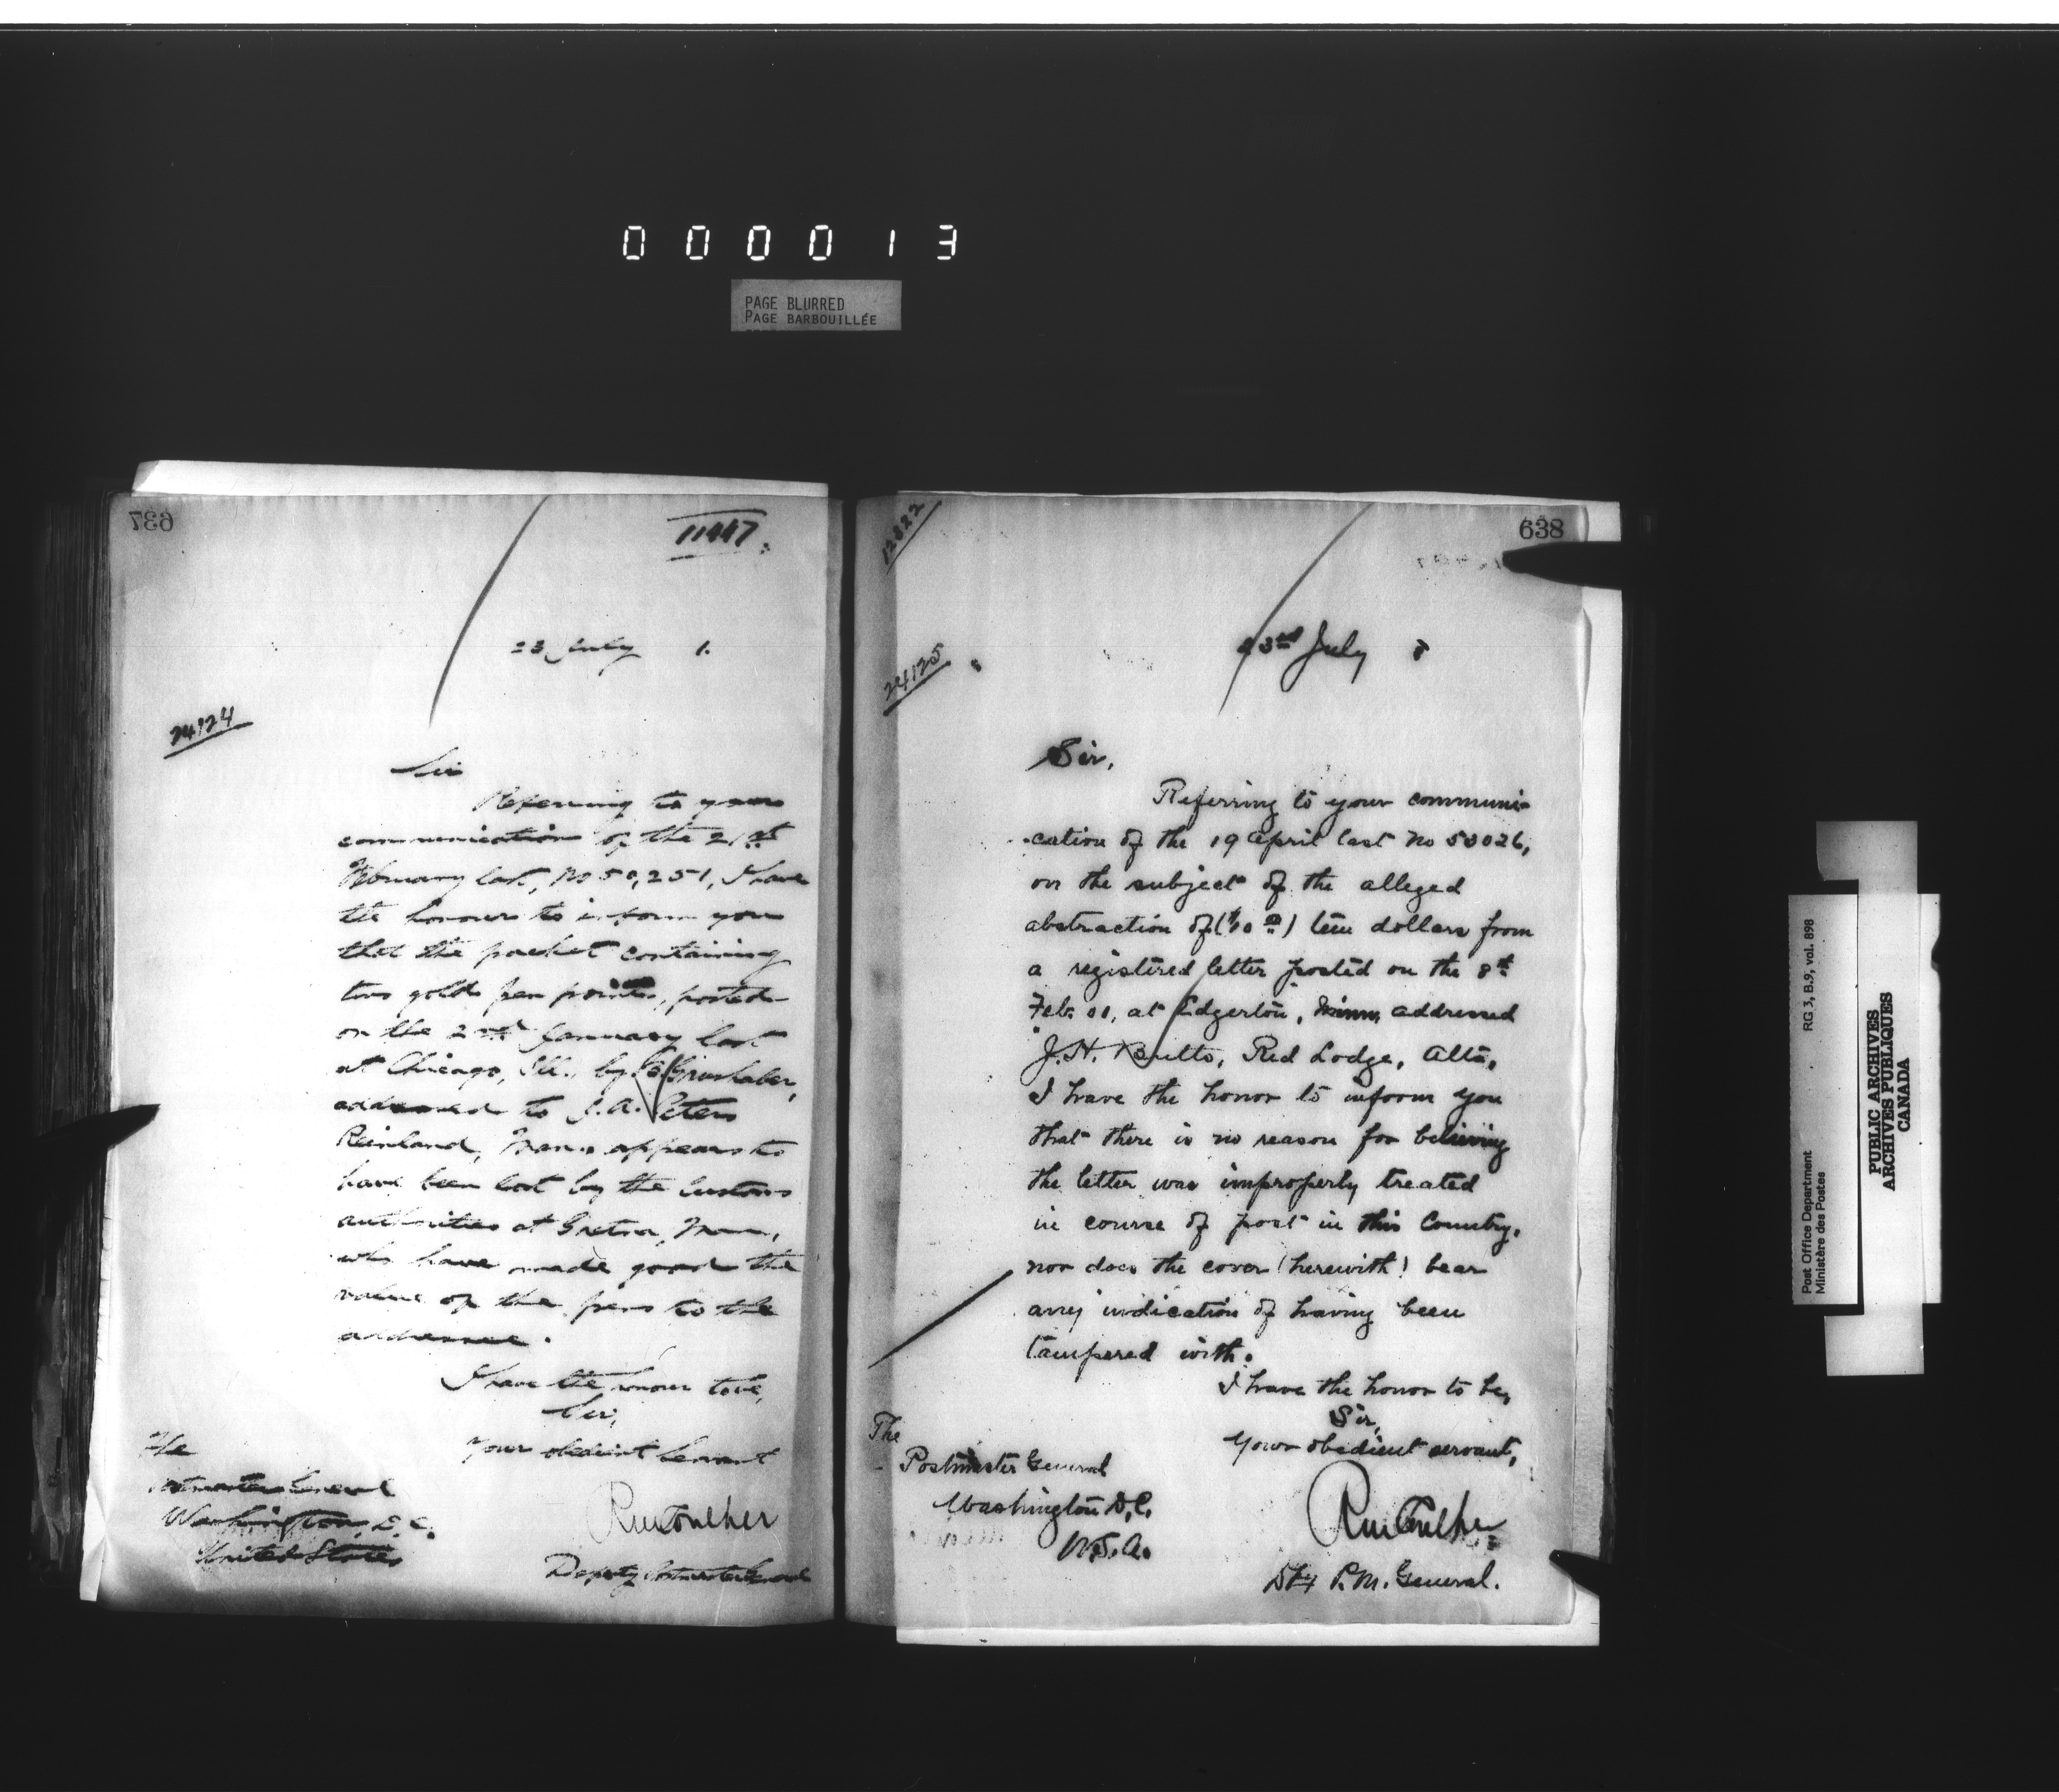 000013
PAGE BLURRED
PAGE BARBOUILLÉE
637
11447
23 July 1.
24124
Sir
Referring to your
communication of the 21st
February last, No 50,251, I have
the honour to inform you
that the packet containing
two gold pen points, posted
on the 2nd January last
at Chicago, Ill., by
addressed to J. A. Peters
Reinland, Man. appears to
have been lost by the Customs
authorities at Gretna, Man.,
who have made good the
value of the pens to the
addressee.
I have the honour to be,
Sir,
Your obedient Servant
The
Postmaster General
Washington, D. C.
United States
RM Coulter
Deputy Postmaster General
638
12322
24125
23rd July
Sir,
Referring to your communi-
-cation of the 19 April last No 53026,
on the subject of the alleged
abstraction of ($10 00) ten dollars from
a registered letter posted on the 8th
Feb. 01, at Edgerton, Minn, addressed
J. H. Red Lodge, Alta,
I have the honor to inform you
that there is no reason for believing
the letter was improperly treated
in course of post in this Country,
nor does the cover (herewith) bear
any indication of having been
tampered with.
I have the honor to be,
Sir,
Your obedient servant,
The
Postmaster General
Washington D.C.
U.S.A.
RM Coulter
Dty P.M. General.
Post Office Department
Ministère des Postes
RG 3, B.9, vol. 898
PUBLIC ARCHIVES
ARCHIVES PUBLIQUES
CANADA